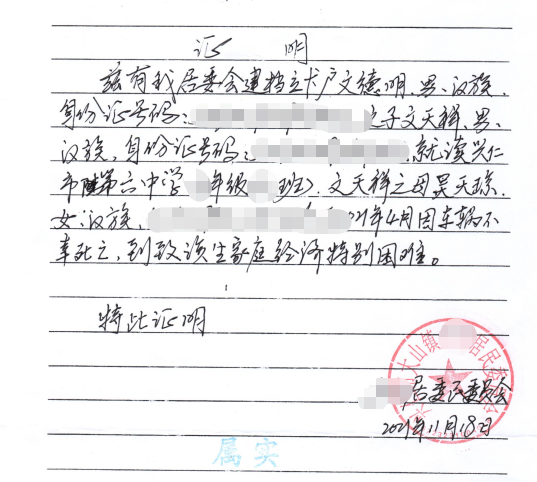 证 明
兹有我居委会建档立卡户文德明、男、汉族、
身份证号码: 之子文天祥、男、
汉族、身份证号码: 就读兴仁
市第六中学 年级 班)、文天祥之母吴天琼、
女、汉族、 21年4月因车祸不
幸死亡、到致该生家庭经济特别困难。
特此证明
大山镇 居民委
居委会
2021年11月18日
属实